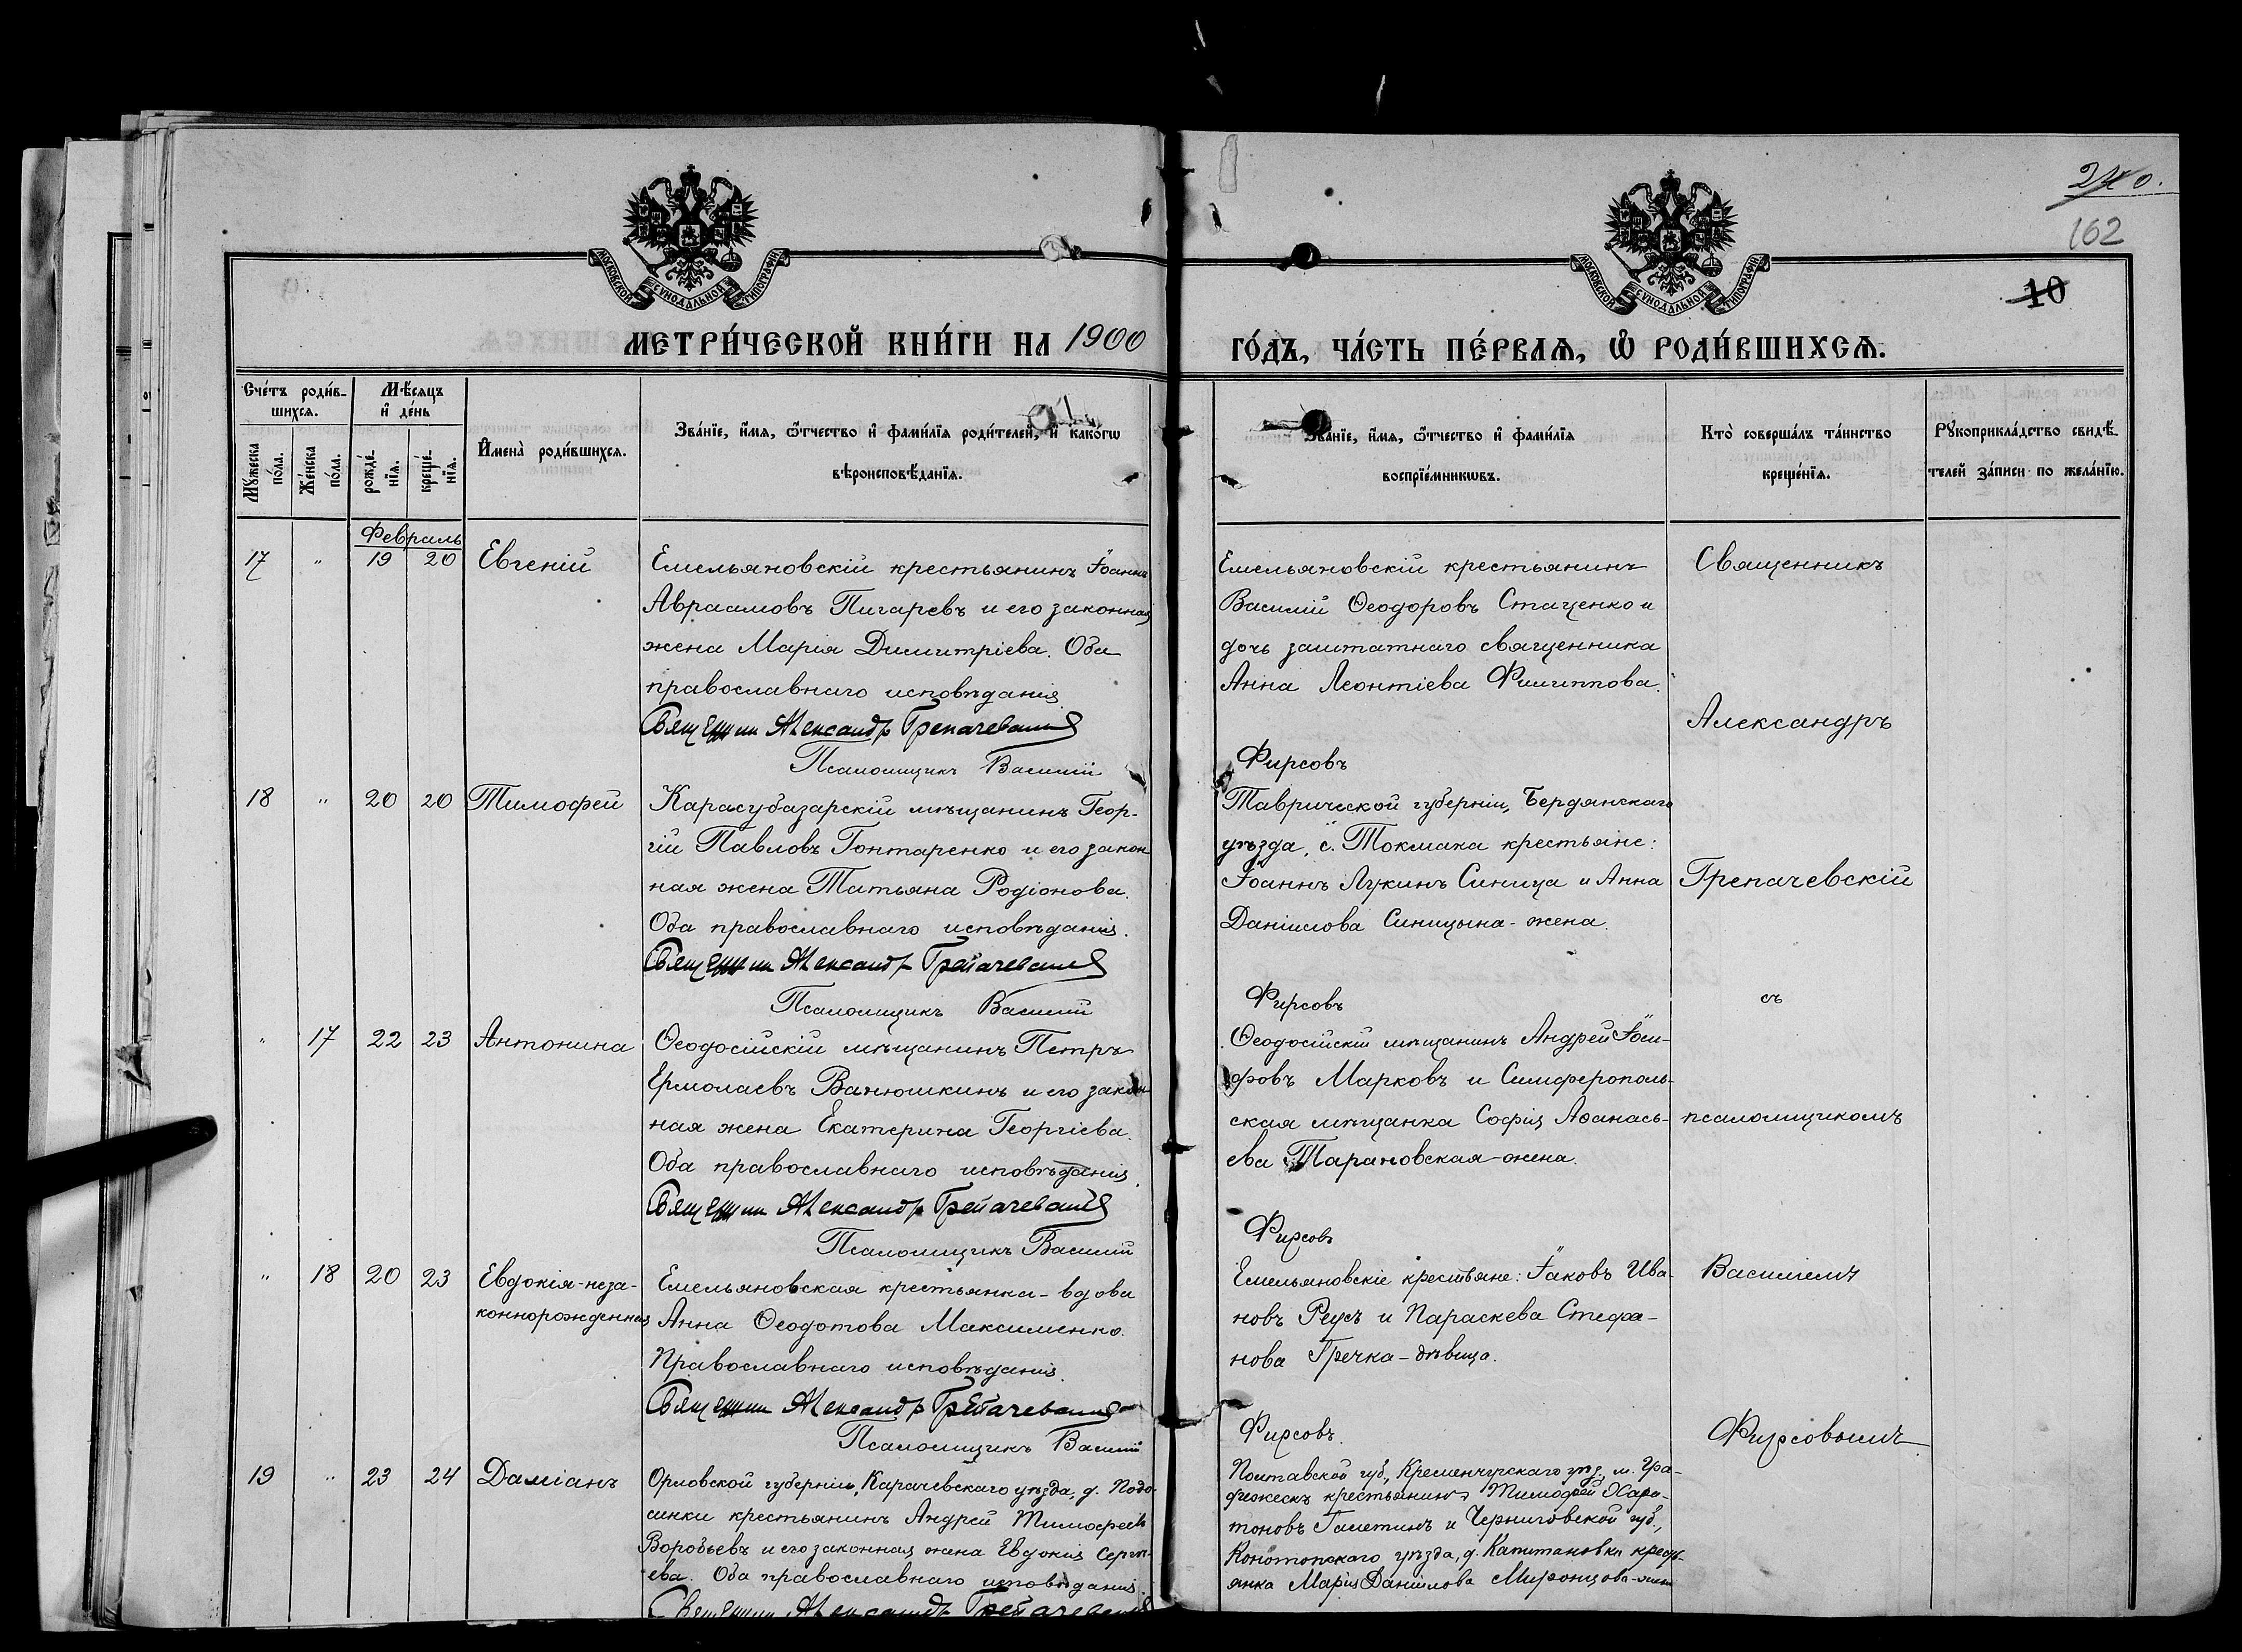 240.
162
10
МОСКОВСКОЙ СѴНОДАЛЬНОЙ ТИПОГРАФІИ
МОСКОВСКОЙ СѴНОДАЛЬНОЙ ТИПОГРАФІИ
МЕТРИ́ЧЕСКОЙ КНИ́ГИ НА 1900
ГО́ДЪ, ЧА́СТЬ ПЕ́РВАѦ, Ѽ РОДИ́ВШИХСѦ.
Сче́тъ роди́в-
шихсѧ.
Мѣ́сѧцъ
и҆ де́нь
Мꙋ́жеска
по́ла.
Же́нска
по́ла.
рожде́-
нїѧ.
креще́-
нїѧ.
И҆мена̀ роди́вшихсѧ.
Зва́нїе, и҆́мѧ, ѻ҆́тчество и҆ фами́лїѧ роди́телей, и҆ како́гѡ
вѣроисповѣ́данїѧ.
Зва́нїе, и҆́мѧ, ѻ҆́тчество и҆ фами́лїѧ
воспрїе́мникѡвъ.
Кто̀ соверша́лъ та́инство
креще́нїѧ.
Рꙋкоприкла́дство свидѣ́-
телей за́писи по жела́нїю.
Февраль
17 " 19 20 Евгеній
Емельяновскій крестьянинъ Іоаннъ
Авраамовъ Пигаревъ и его законная
жена Марія Димитріева. Оба
православнаго исповѣданія
Священник Александр Трепачевский
Псаломщикъ Василій
Емельяновскій крестьянинъ
Василій Ѳеодоровъ Стаценко и
дочь заштатнаго священника
Анна Леонтіева Филиппова.
Фирсовъ
Священникъ
Александръ
18 " 20 20 Тимофей
Карасубазарскій мѣщанинъ Геор-
гій Павловъ Гонтаренко и его закон
ная жена Татьяна Родіонова.
Оба православнаго исповѣданія.
Священник Александр Трепачевский
Псаломщикъ Василій
Таврической губерніи, Бердянскаго
уѣзда, с. Токмака крестьяне:
Іоаннъ Лукинъ Синица и Анна
Даніилова Синицына - жена.
Фирсовъ
Трепачевскій
съ
" 17 22 23 Антонина
Ѳеодосійскій мѣщанинъ Петръ
Ермолаевъ Ванюшкинъ и его закон
ная жена Екатерина Георгіева.
Оба православнаго исповѣданія.
Священник Александр Трепачевский
Псаломщикъ Василій
Ѳеодосійскій мѣщанинъ Андрей Іоси-
фовъ Марковъ и Симферополь-
ская мѣщанка Софія Аѳанась-
ева Тарановская - жена.
Фирсовъ
псаломщикомъ
" 18 20 23 Евдокія - неза-
коннорожденная
Емельяновская крестьянка - вдова
Анна Ѳеодотова Максименко.
Православнаго исповѣданія.
Священник Александр Трепачевский
Псаломщикъ Василій
Емельяновскіе крестьяне: Іаковъ Ива-
новъ Реусъ и Параскева Стефа-
нова Гречка - дѣвица.
Фирсовъ.
Василіемъ
Фирсовымъ
19 " 23 24 Даміанъ
Орловской губерніи, Карачевскаго уѣзда, д. Подо-
синки крестьянинъ Андрей Тимофеевъ
Воробьевъ и его законная жена Евдокія Серги-
ева. Оба православнаго исповѣданія.
Священник Александр Трепачевский
Полтавской губ., Кременчугскаго уѣз., м. Гра-
дижескъ крестьянинъ Тимофей Хари-
тоновъ Галетинъ и Черниговской губ.,
Конотопскаго уѣзда, д. Капитановки кресть-
янка Марія Даніилова Миронцова -